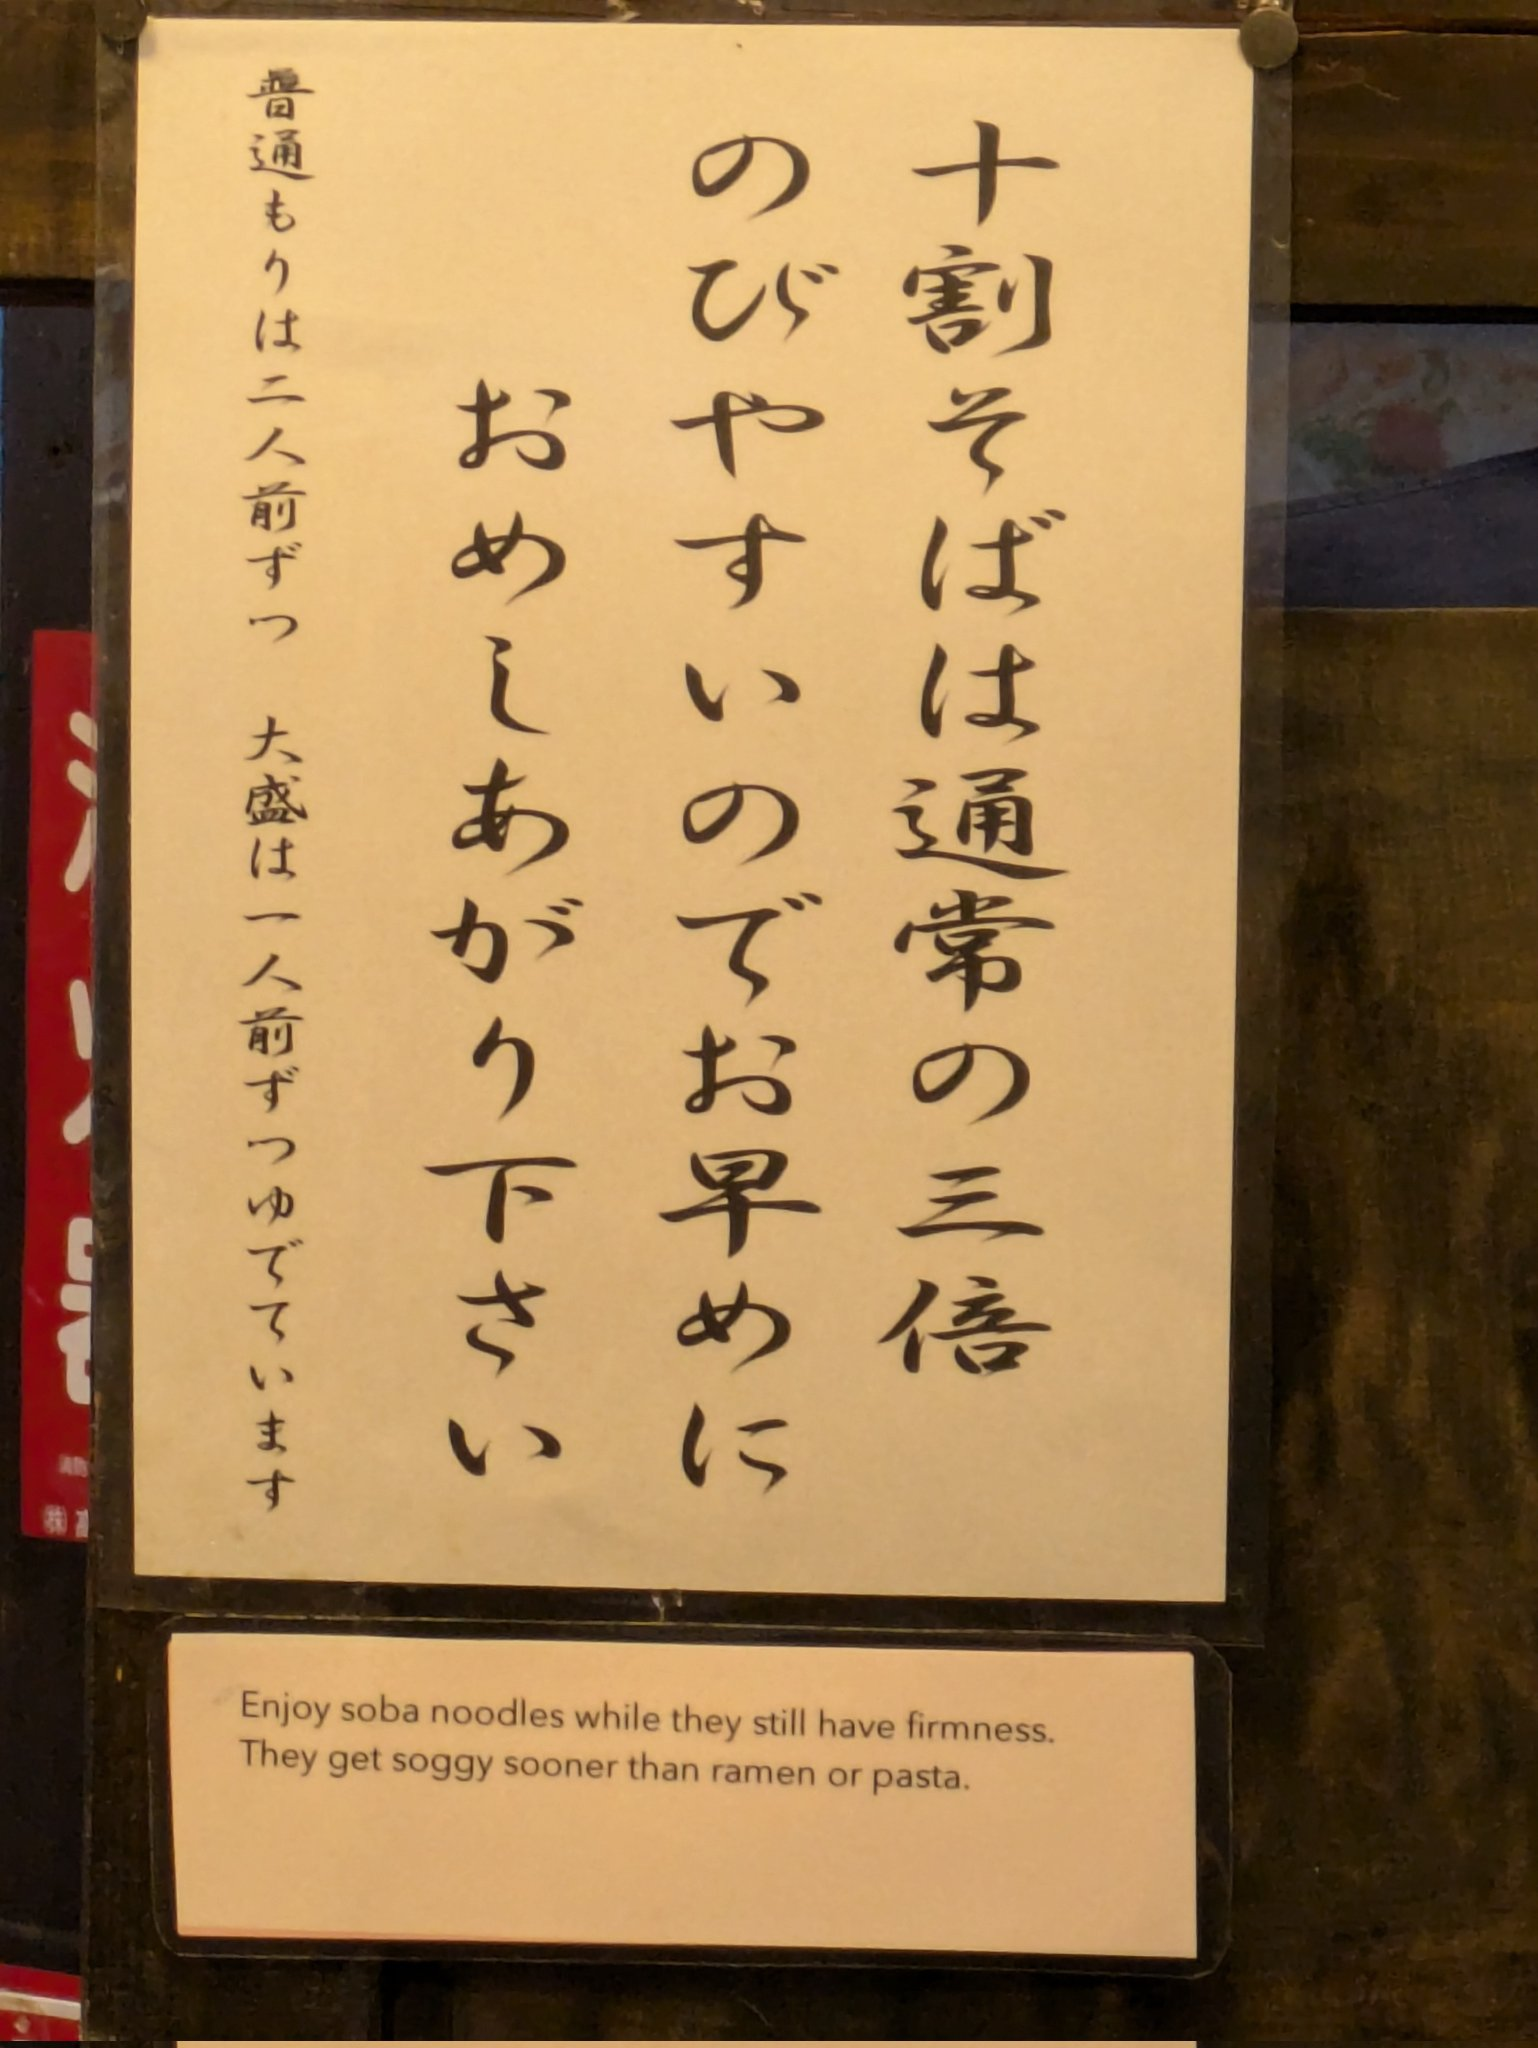 十割そばは通常の三倍
のびやすいのでお早めに
おめしあがり下さい
普通もりは二人前ずつ　大盛は一人前ずつゆでています
Enjoy soba noodles while they still have firmness.
They get soggy sooner than ramen or pasta.